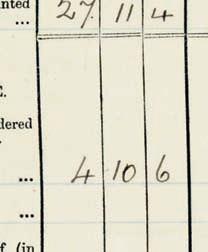 nted 27. 11 4
...
E.
dered
... 4 10 6
...
f (in